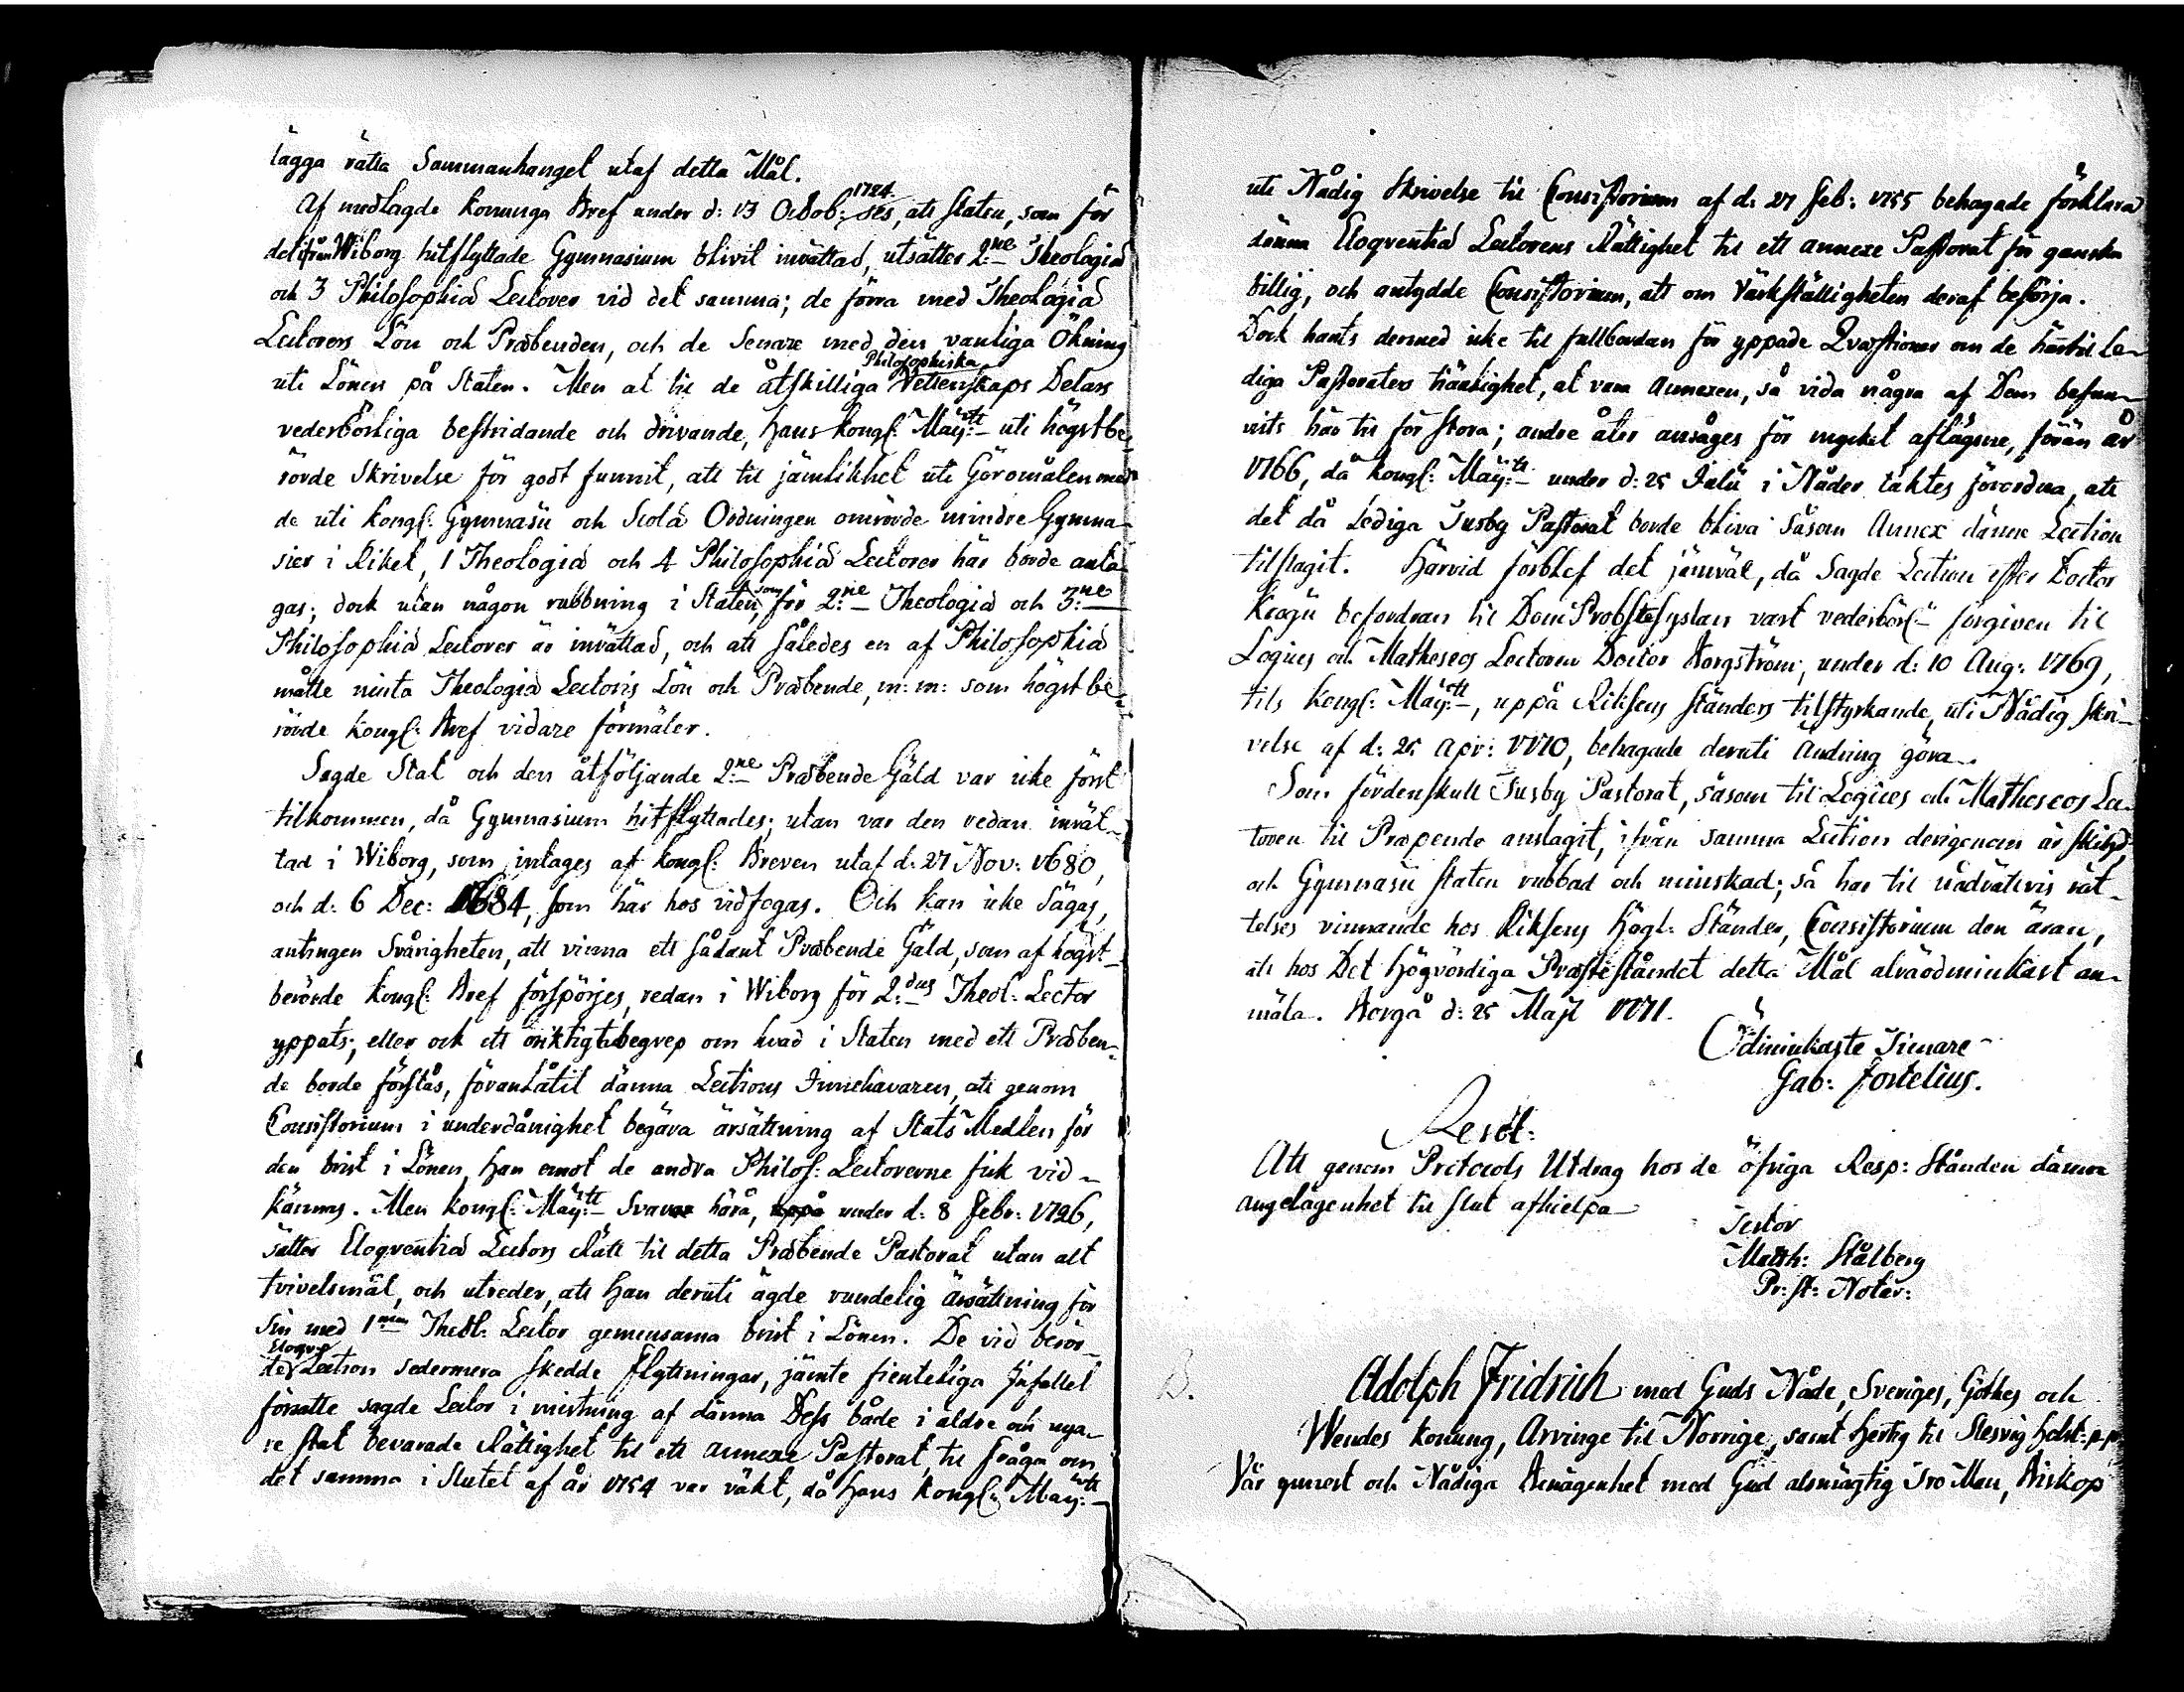 lägga rätta Sammanhanget utaf detta Mål.
Af medlagde Konunga Bref under d: 13 Octob: 1724. ses, att Staten, som för
det ifrån Wiborg hitflyttade Gymnasium blivit inrättad, utsätter 2:ne Theologiæ
och 3 Philosophiæ Lectorer vid det samma; de förra med Theologiæ
Lectorers Lön och Præbenden, och de senare med den vanliga Ökning
uti Lönen på Staten. Men at til de åtskilliga Philosophiska Vettenskaps Delars
vederbörliga bestridande och drivande, Hans Kongl: Maij:tt uti högstbe-
rörde Skrivelse för godt funnit, att til jämlikhet uti Göromålen med
de uti Kongl: Gymnasii och Scolæ Ordningen omrörde mindre Gymna-
sier i Riket, 1 Theologiæ och 4 Philosophiæ Lectorer här borde anta-
gas; dock utan någon rubbning i Staten, som för 2:ne Theologiæ och 3:ne
Philosophiæ Lectorer är inrättad, och att således en af Philosophiæ
måtte niuta Theologiæ Lectoris Lön och Præbende, m: m: som högstbe-
rörde Kongl: Bref vidare förmäler.
Sagde Stat och den åtföljande 2:ne Præbende Gäld var icke först
tilkommen, då Gymnasium hitflyttades; utan var den redan inrät-
tad i Wiborg, som intages af Kongl: Breven utaf d: 27 Nov: 1680,
och d: 6 Dec: 1684, som här hos vidfogas. Och kan icke sägas,
antingen Svårigheten, att vinna ett sådant Præbende Gäld, som af högst-
berörde Kongl: Bref förspörjes, redan i Wiborg för 2:dus Theol: Lector
yppats; eller ock ett oriktigt begrep om hvad i Staten med ett Præben-
de borde förstås, föranlåtit dänna Lections Innehavaren, att genom
Consistorium i underdånighet begära ärsättning af Stats Medlen för
den brist i Lönen, han emot de andra Philos: Lectorerne fick vid-
kännas. Men Kongl: Maij:tt Svar härå, under d: 8 Febr: 1726,
sätter Eloqventiæ Lectors Rätt til detta Præbende Pastorat utan alt
tvivelsmål, och utreder, att han deruti ägde rundelig ärsättning för
sin med 1:mus Theol: Lector gemensama brist i Lönen. De vid berör-
de Eloqv:æ Lection sedermera skedde flyttningar, jämte fienteliga Infallet
försatte sagde Lector i mistning af dänna Dess både i äldre och nya-
re Stat bevarade Rättighet til ett annexe Pastorat, til fråga om
det samma i slutet af år 1754 var väkt, då Hans Kongl: Maij:tt
uti Nådig Skrivelse til Consistorium af d: 27 Feb: 1755 behagade förklara
dänna Eloqventiæ Lectorens Rättighet til ett annexe Pastorat för ganska
billig, och antydde Consistorium, att om Värkställigheten deraf besörja.
Dock hants dermed icke til fullbordan för yppade Qvæstioner om de härtil le-
diga Pastoraters tiänlighet, at vara Annexen, så vida några af Dem befun-
nits här til för stora; andre åter ansåges för mycket aflägsne, förän år
1766, då Kongl: Maij:tt under d: 25 Julii i Nåder täktes förordna, att
det då Lediga Jusby Pastorat borde bliva såsom Annex dänne Lection
tilslagit. Härvid förblef det jämväl, då Sagde Lection efter Doctor
Krogii befordran til DomProbstesyslan vart vederbörl:nförgiven til
Logices och Matheseos Lectoren Doctor Borgström, under d: 10 Aug: 1769,
tils Kongl: Maij:tt, uppå Riksens Ständers tilstyrkande, uti Nådig Skri-
velse af d: 25 Apr: 1770, behagade deruti ändring göra.
Som fördenskull Jusby Pastorat, såsom til Logices och Matheseos Lec-
toren til Præpende anslagit, ifrån samma Lection derigenom är skildt,
och Gymnasii Staten rubbad och minskad; så har til rådrättvis rät-
telses vinnande hos Riksens Högl: Ständer, Consistorium den äran,
att hos Det Högvördiga Præsteståndet detta Mål alraödmiukast an-
mäla. Borgå d: 25 Maji 1771.
Ödmiukaste Tienare
Gab: Fortelius.
Resol:
Att genom Protocols Utdrag hos de öfriga Resp: Stånden dänna
angelägenhet til slut afhielpa
Testor
Matth: Stålberg
Pr: st: Notar:
B. Adolph Fridrich med Guds Nåde, Sveriges, Göthes och
Wendes Konung, Arvinge til Norrige, samt Hertig til Slesvig Holst: p.p.
Vår gunest och Nådiga Benägenhet med Gud alsmägtig Tro Man, Biskop